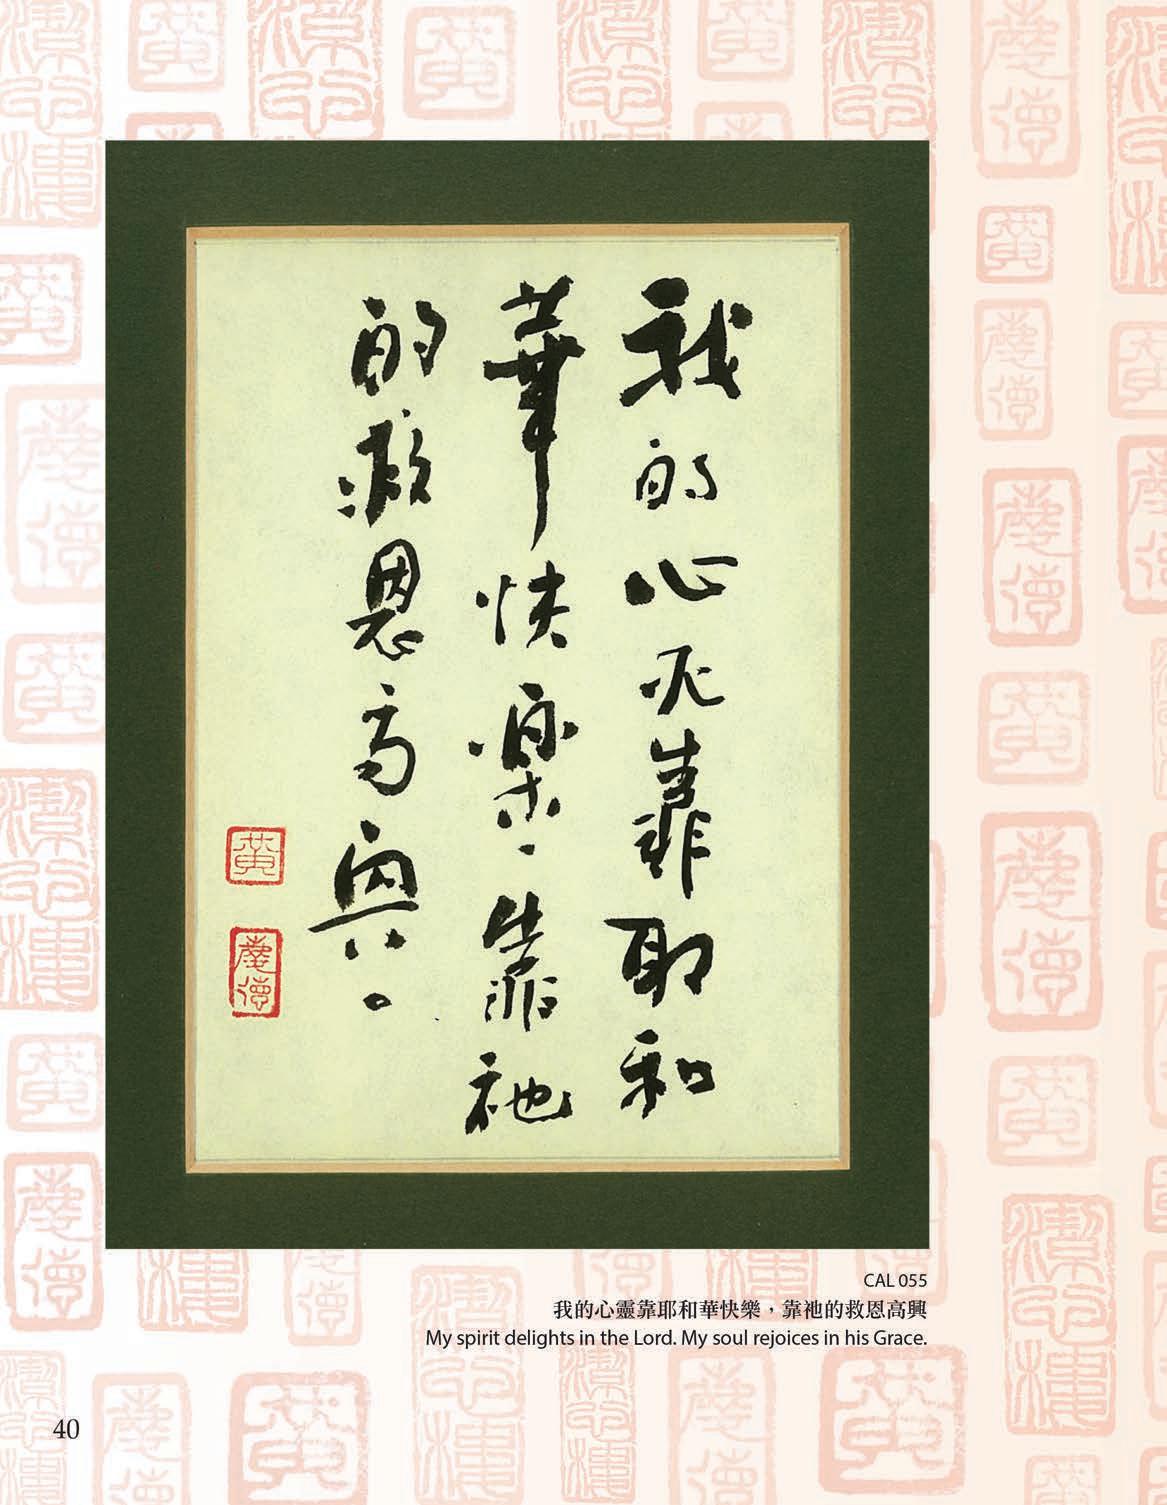 我的心灵靠耶和
華快樂，靠祂
的救恩高興。
黄
慶德
CAL 055
我的心靈靠耶和華快樂，靠祂的救恩高興
My spirit delights in the Lord. My soul rejoices in his Grace.
40